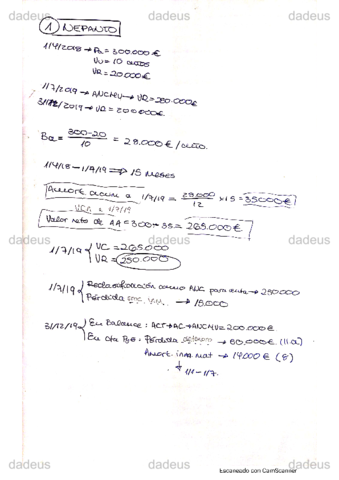 dadeus dadeus dadeus
1 NEPANTO
1/4/2018 → Pa = 300.000 €
VU = 10 años
VR = 20.000 €
1/7/2019 → ANCMV → VR = 250.000 €
31/12/2019 → VR = 200.000 €
Ba = 300-20 / 10 = 28.000 € / año.
1/4/18 - 1/7/19 ⇒ 15 meses
Amort. acum a 1/7/19 = 28.000 / 12 x 15 = 35000 €
1/7/19
Valor neto de AA = 300 - 35 = 265.000 €
dadeus dadeus dadeus
1/7/19 { VC = 265.000
VR = 250.000
1/7/19 { Reclasificación como ANC para venta → 250000
Pérdida → 15.000
31/12/19 { En Balance: ACT → AC → ANCMV = 200.000 €
En Cta PyG: Pérdida → 50.000 € (11a)
Amort. inm. mat → 14000 € (8)
↓ 1/1 - 1/7.
dadeus dadeus dadeus
Escaneado con CamScanner